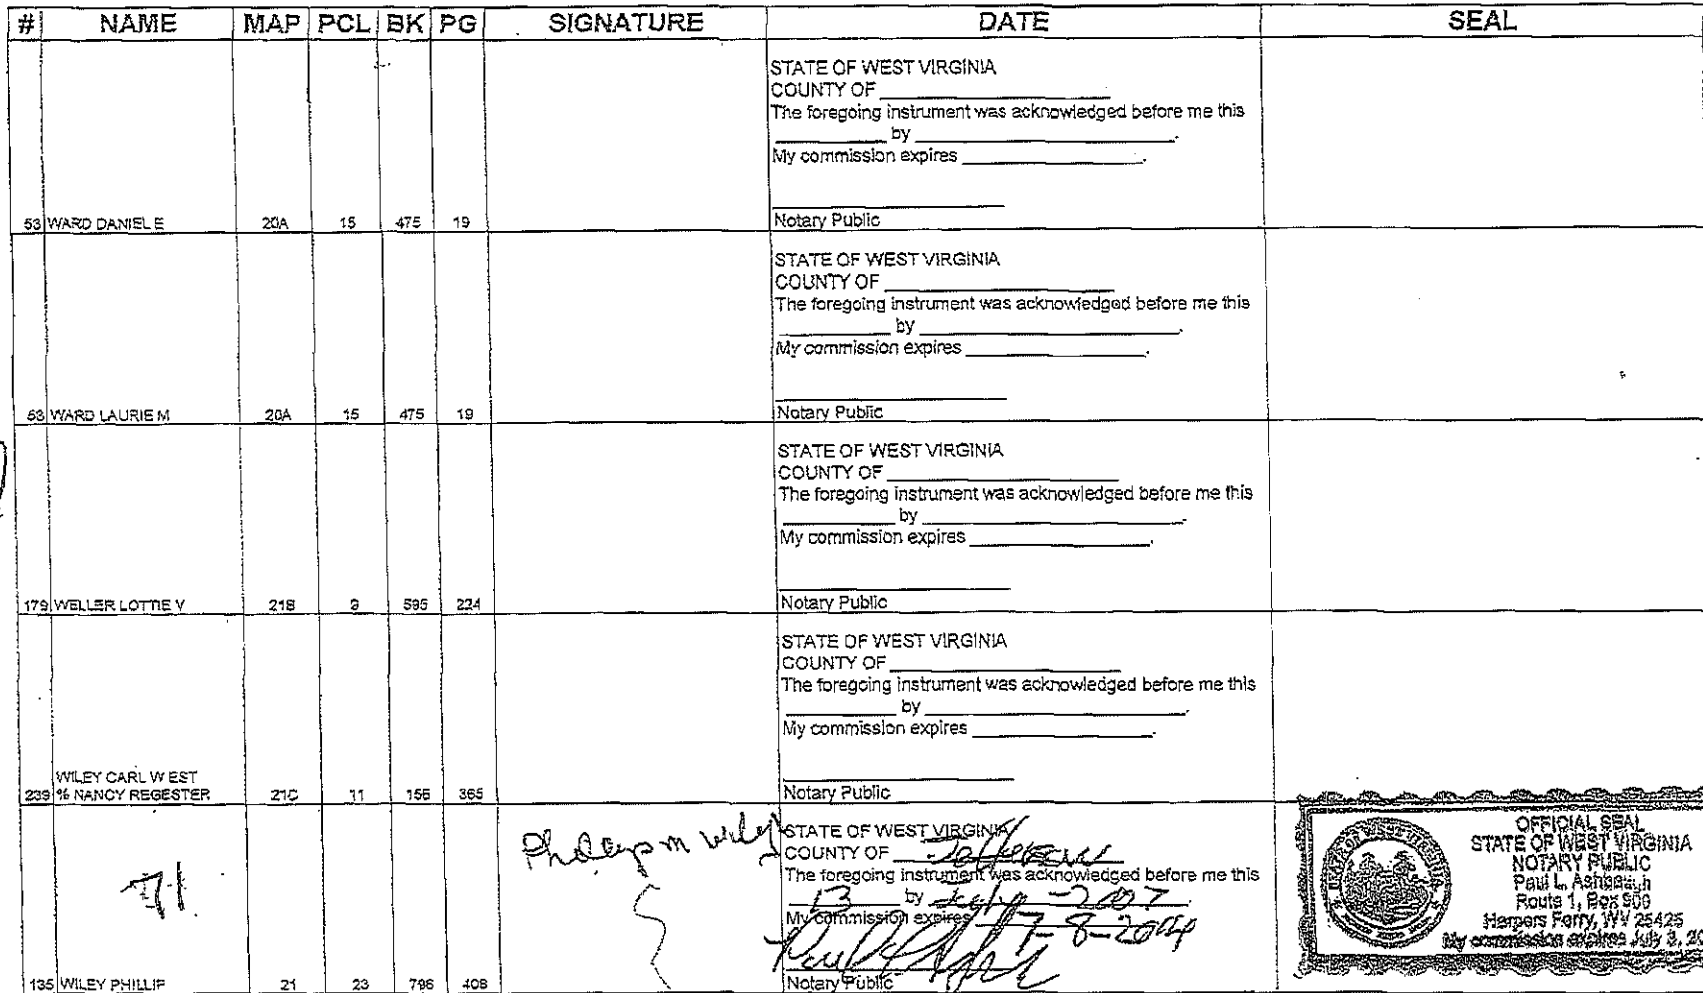 # NAME MAP PCL BK PG SIGNATURE DATE SEAL
STATE OF WEST VIRGINIA
COUNTY OF
The foregoing instrument was acknowledged before me this
by
My commission expires
Notary Public
53 WARD DANIEL E 20A 15 475 19
STATE OF WEST VIRGINIA
COUNTY OF
The foregoing instrument was acknowledged before me this
by
My commission expires
Notary Public
53 WARD LAURIE M 20A 15 475 19
STATE OF WEST VIRGINIA
COUNTY OF
The foregoing instrument was acknowledged before me this
by
My commission expires
Notary Public
179 WELLER LOTTIE V 21B 9 595 224
STATE OF WEST VIRGINIA
COUNTY OF
The foregoing instrument was acknowledged before me this
by
My commission expires
Notary Public
WILEY CARL W EST
239 % NANCY REGESTER 21C 11 156 365
STATE OF WEST VIRGINIA
COUNTY OF Jefferson
The foregoing instrument was acknowledged before me this
13 by July - 2007
My commission expires 7-8-2014
Notary Public
135 WILEY PHILLIP 21 23 796 408
OFFICIAL SEAL
STATE OF WEST VIRGINIA
NOTARY PUBLIC
Paul L.
Route 1, Box 509
Harpers Ferry, WV 25425
My commission expires July